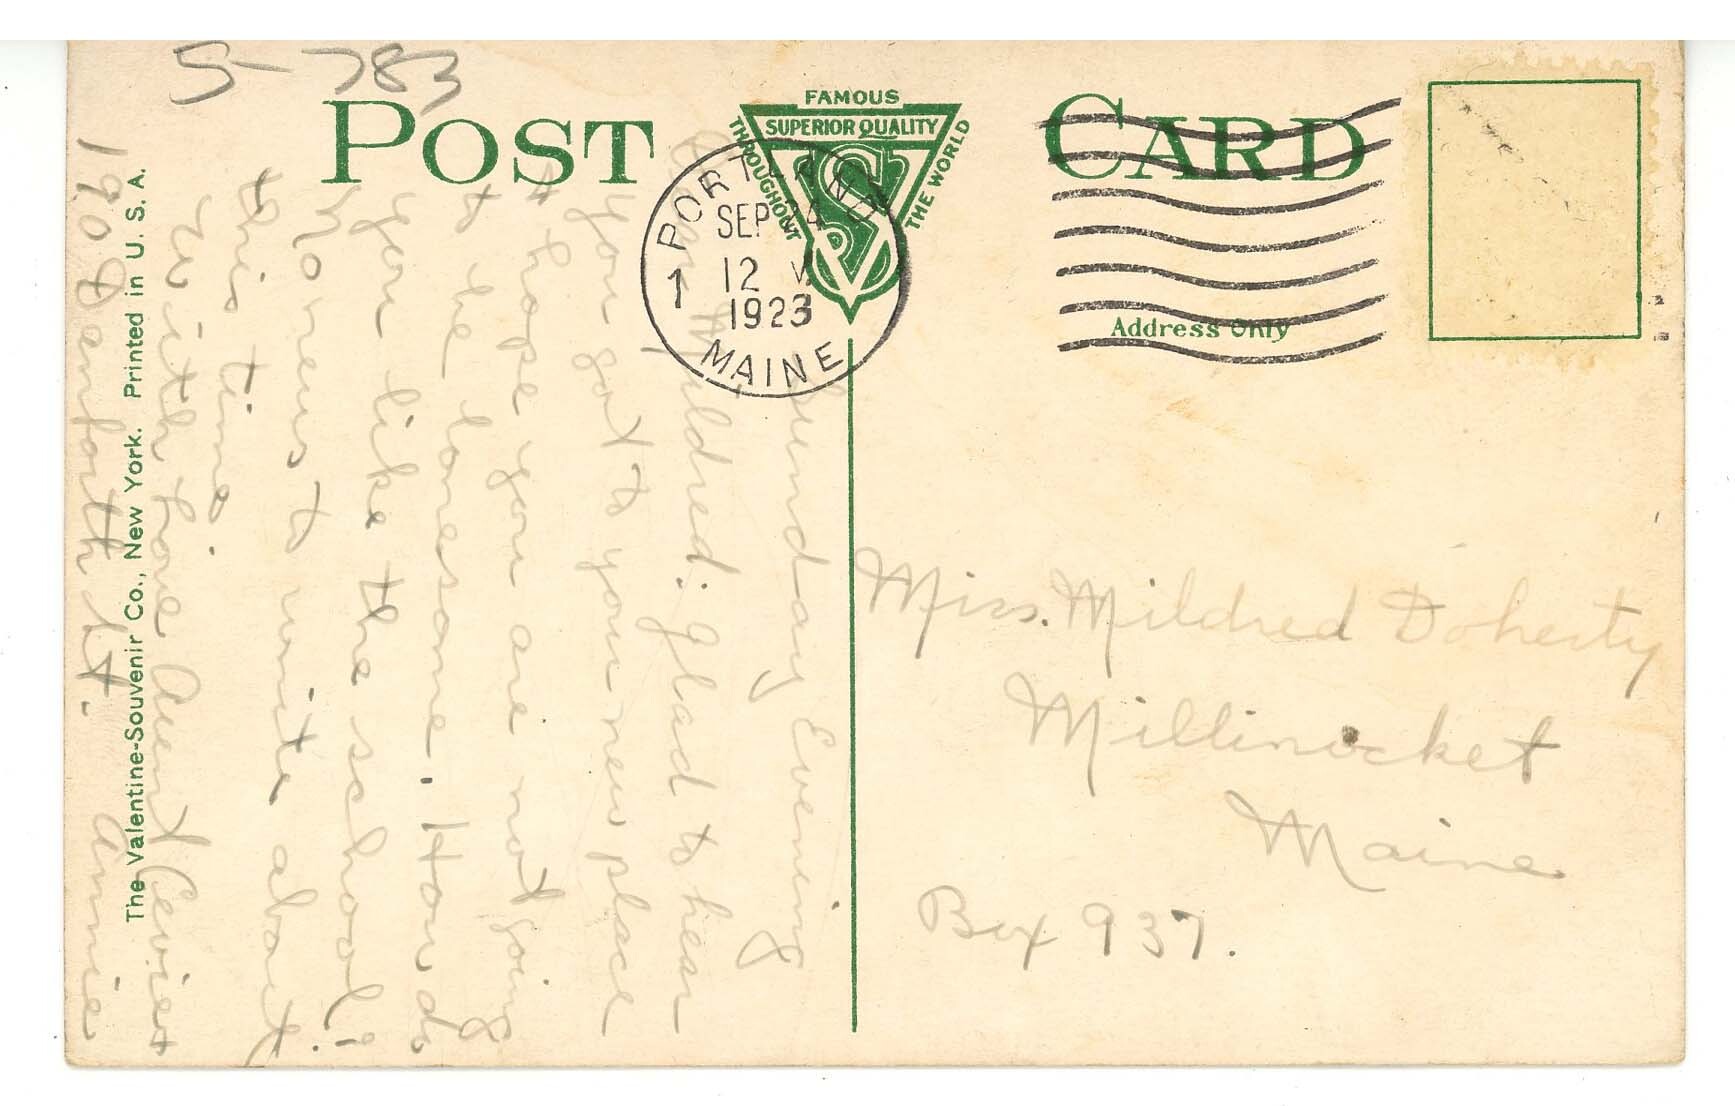 5-783
POST CARD
FAMOUS
SUPERIOR QUALITY
THROUGHOUT THE WORLD
VS
PORTLAND
SEP 24
1 12
1923
MAINE
Address Only
Sunday Evening
Dear Mildred: glad to hear
you got to your new place
I hope you are not going
to be lonesome. How do
you like the school?
No news to write about
this time.
With love Aunt
190 Danforth St. Annie
The Valentine-Souvenir Co., New York. Printed in U. S. A.
Miss. Mildred Doherty
Millinocket
Maine
Box 937.